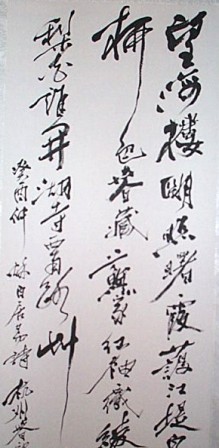 望海樓明照曙霞護江堤白
柳色春藏蘇家紅袖織綾
梨花誰開湖寺西南路草
癸酉仲秋白居易詩杭州春望